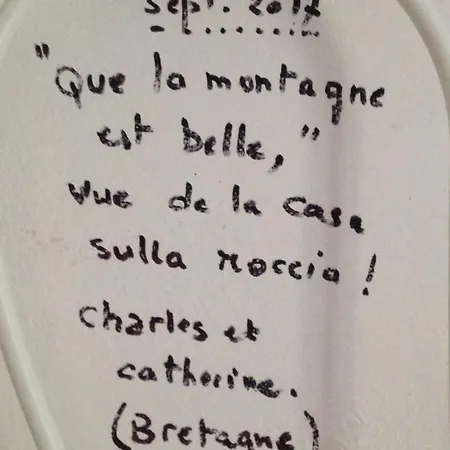 sept. 2017
"Que la montagne
est belle,"
vue de la casa
sulla roccia !
charles et
catherine.
(Bretagne)